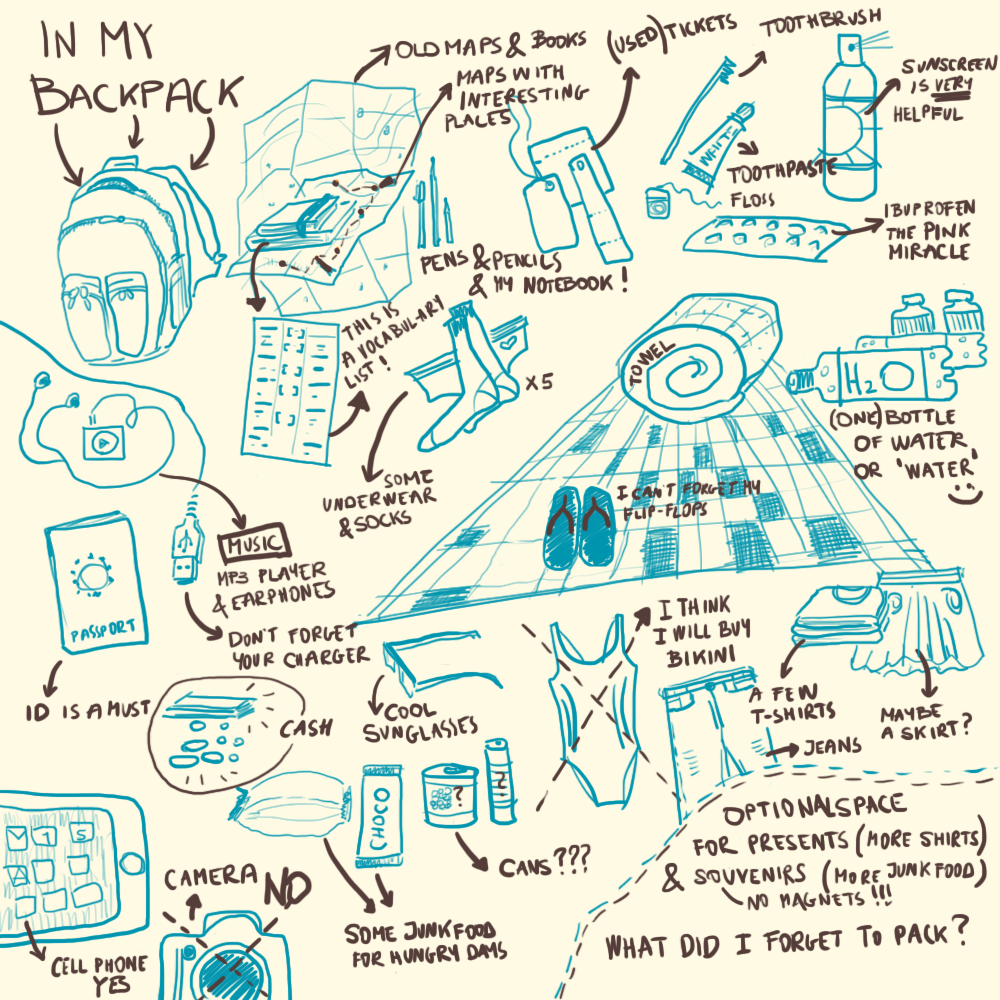 IN MY
BACKPACK
OLD MAPS & BOOKS
MAPS WITH
INTERESTING
PLACES
(USED) TICKETS
TOOTHBRUSH
SUNSCREEN
IS VERY
HELPFUL
WHITE
TOOTHPASTE
FLOSS
IBUPROFEN
THE PINK
MIRACLE
PENS & PENCILS
& MY NOTEBOOK!
THIS IS
A VOCABULARY
LIST!
X5
SOME
UNDERWEAR
& SOCKS
TOWEL
I CAN'T FORGET MY
FLIP-FLOPS
H2O
(ONE) BOTTLE
OF WATER
OR 'WATER'
MUSIC
MP3 PLAYER
& EARPHONES
DON'T FORGET
YOUR CHARGER
PASSPORT
ID IS A MUST
CASH
COOL
SUNGLASSES
I THINK
I WILL BUY
BIKINI
A FEW
T-SHIRTS
MAYBE
A SKIRT?
JEANS
CHOCO
?
CANS???
SOME JUNKFOOD
FOR HUNGRY DAYS
1 5
CELL PHONE
YES
CAMERA NO
OPTIONAL SPACE
FOR PRESENTS (MORE SHIRTS)
& SOUVENIRS (MORE JUNKFOOD)
NO MAGNETS!!!
WHAT DID I FORGET TO PACK?